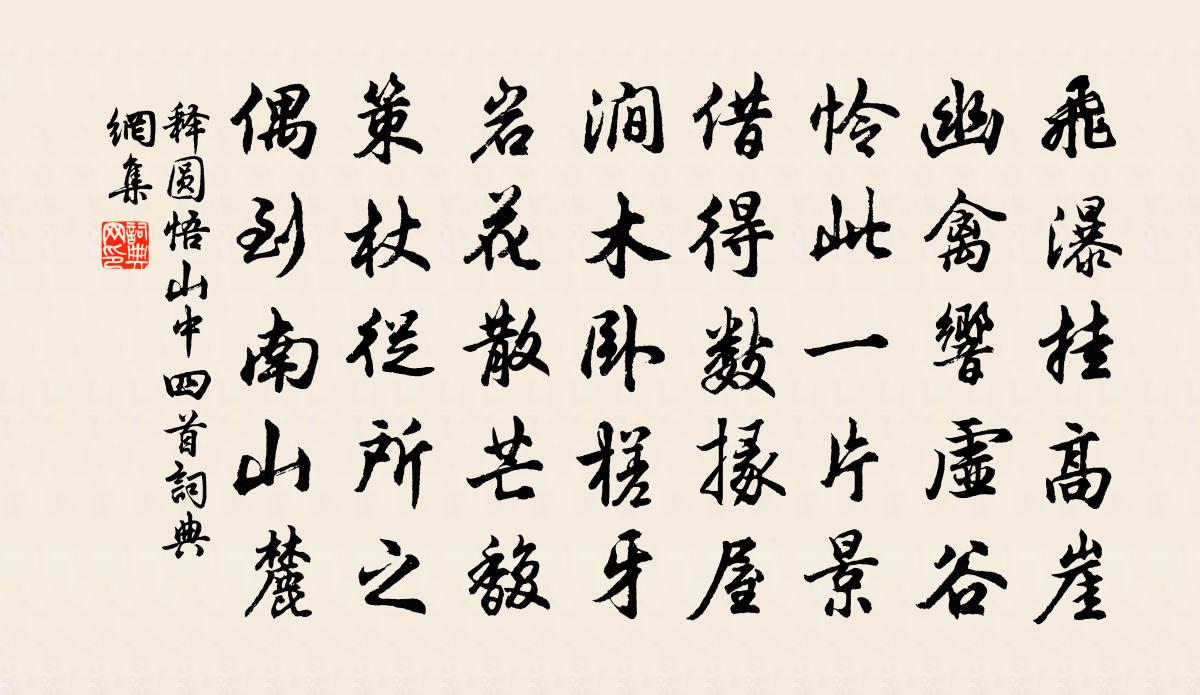 飛瀑挂高崖
幽禽響虛谷
怜此一片景
借得數椽屋
澗木卧槎牙
岩花散芒馥
策杖從所之
偶到南山麓
释圆悟山中四首詞典
網集
詞典网印